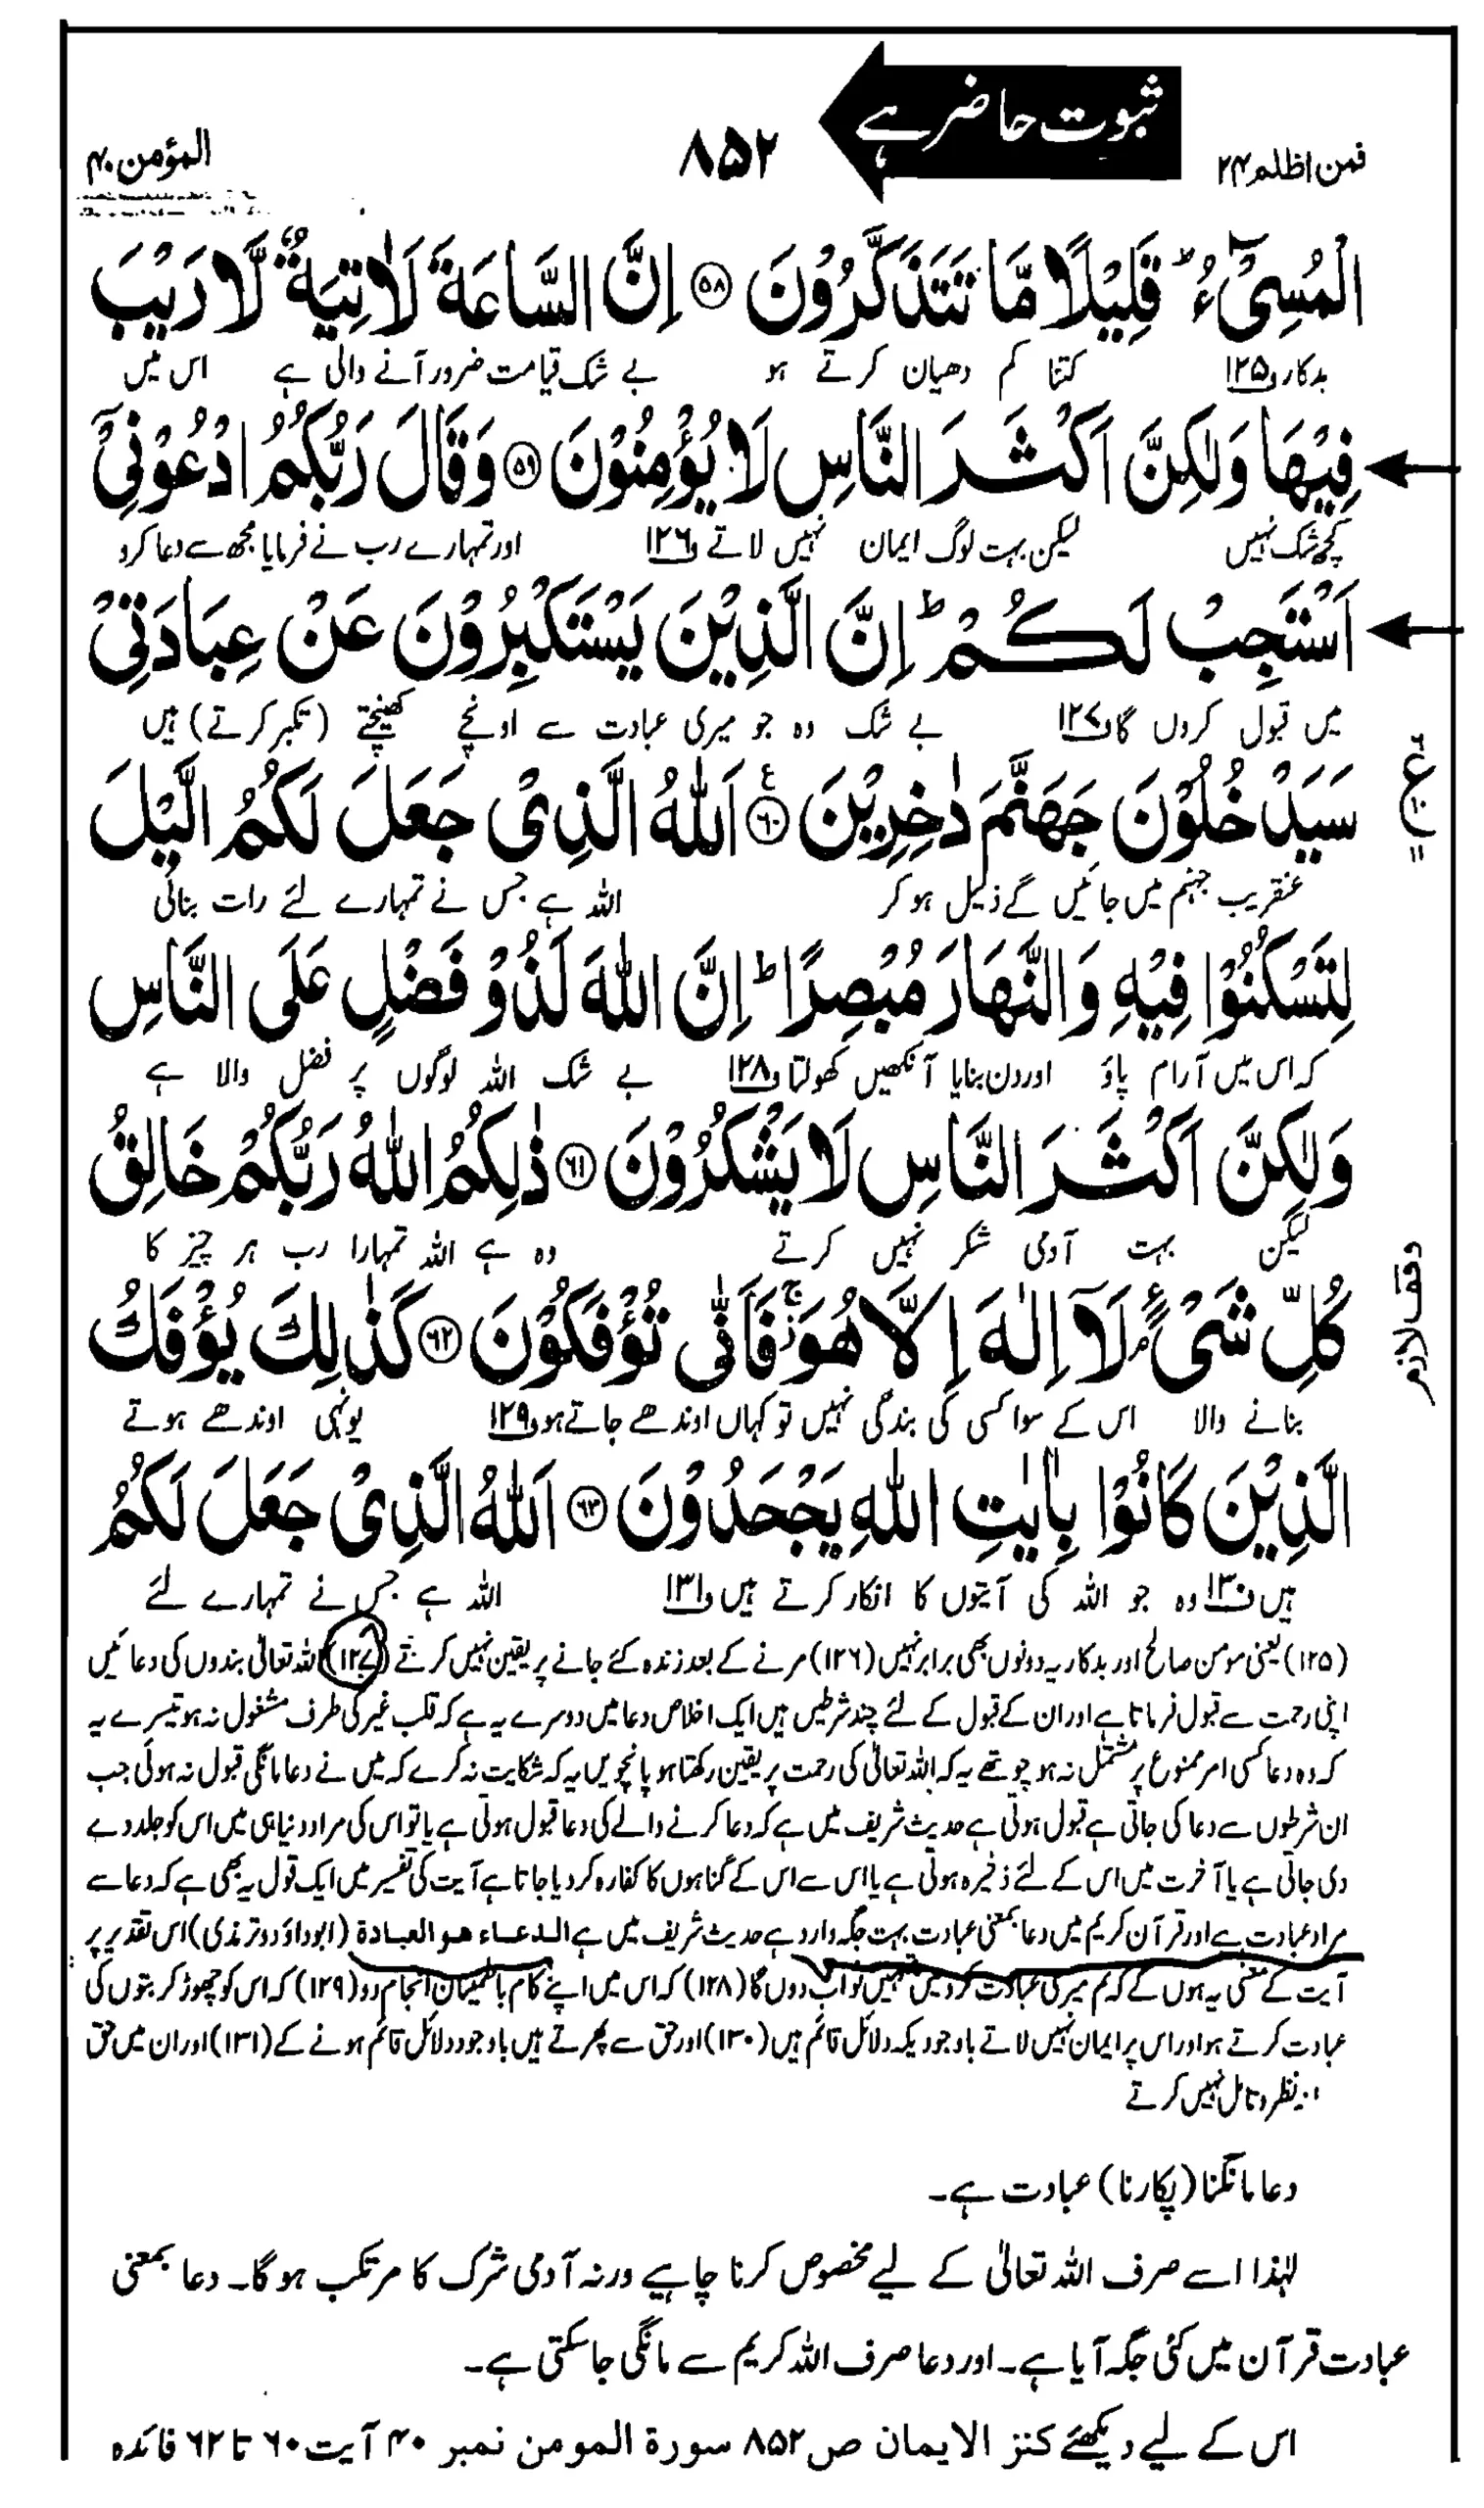 فمن اظلم ۲۴
ثبوت حاضر ہے
۸۵۲
المؤمن ۴۰
الْمُسِیْٓءُ ؕ قَلِیْلًا مَّا تَتَذَكَّرُوْنَ ﴿۵۸﴾ اِنَّ السَّاعَةَ لَاٰتِیَةٌ لَّا رَیْبَ
بدکار و۱۲۵ کتنا کم دھیان کرتے ہو بے شک قیامت ضرور آنے والی ہے اس میں
فِیْهَا وَلٰكِنَّ اَكْثَرَ النَّاسِ لَا یُؤْمِنُوْنَ ﴿۵۹﴾ وَقَالَ رَبُّكُمُ ادْعُوْنِیْۤ
کچھ شک نہیں لیکن بہت لوگ ایمان نہیں لاتے و۱۲۶ اور تمہارے رب نے فرمایا مجھ سے دعا کرو
اَسْتَجِبْ لَكُمْ ؕ اِنَّ الَّذِیْنَ یَسْتَكْبِرُوْنَ عَنْ عِبَادَتِیْ
میں قبول کروں گا و۱۲۷ بے شک وہ جو میری عبادت سے اونچے کھینچتے (تکبر کرتے) ہیں
سَیَدْخُلُوْنَ جَهَنَّمَ دٰخِرِیْنَ ﴿۶۰﴾ اَللّٰهُ الَّذِیْ جَعَلَ لَكُمُ الَّیْلَ
عنقریب جہنم میں جائیں گے ذلیل ہو کر اللہ ہے جس نے تمہارے لئے رات بنائی
لِتَسْكُنُوْا فِیْهِ وَالنَّهَارَ مُبْصِرًا ؕ اِنَّ اللّٰهَ لَذُوْ فَضْلٍ عَلَی النَّاسِ
کہ اس میں آرام پاؤ اور دن بنایا آنکھیں کھولتا و۱۲۸ بے شک اللہ لوگوں پر فضل والا ہے
وَلٰكِنَّ اَكْثَرَ النَّاسِ لَا یَشْكُرُوْنَ ﴿۶۱﴾ ذٰلِكُمُ اللّٰهُ رَبُّكُمْ خَالِقُ
لیکن بہت آدمی شکر نہیں کرتے وہ ہے اللہ تمہارا رب ہر چیز کا
كُلِّ شَیْءٍ ۘ لَاۤ اِلٰهَ اِلَّا هُوَ ۚ فَاَنّٰی تُؤْفَكُوْنَ ﴿۶۲﴾ كَذٰلِكَ یُؤْفَكُ
وقف لازم
بنانے والا اس کے سوا کسی کی بندگی نہیں تو کہاں اوندھے جاتے ہو و۱۲۹ یونہی اوندھے ہوتے
الَّذِیْنَ كَانُوْا بِاٰیٰتِ اللّٰهِ یَجْحَدُوْنَ ﴿۶۳﴾ اَللّٰهُ الَّذِیْ جَعَلَ لَكُمُ
ہیں و۱۳۰ وہ جو اللہ کی آیتوں کا انکار کرتے ہیں و۱۳۱ اللہ ہے جس نے تمہارے لئے
(۱۲۵) یعنی مومن صالح اور بدکار یہ دونوں بھی برابر نہیں (۱۲۶) مرنے کے بعد زندہ کئے جانے پر یقین نہیں کرتے (۱۲۷) اللہ تعالیٰ بندوں کی دعائیں
اپنی رحمت سے قبول فرماتا ہے اور ان کے قبول کے لئے چند شرطیں ہیں ایک اخلاص دعا میں دوسرے یہ ہے کہ قلب غیر کی طرف مشغول نہ ہو تیسرے یہ
کہ وہ دعا کسی امر ممنوع پر مشتمل نہ ہو چوتھے یہ کہ اللہ تعالیٰ کی رحمت پر یقین رکھتا ہو پانچویں یہ کہ شکایت نہ کرے کہ میں نے دعا مانگی قبول نہ ہوئی جب
ان شرطوں سے دعا کی جاتی ہے قبول ہوتی ہے حدیث شریف میں ہے کہ دعا کرنے والے کی دعا قبول ہوتی ہے یا تو اس کی مراد دنیا ہی میں اس کو جلد دے
دی جاتی ہے یا آخرت میں اس کے لئے ذخیرہ ہوتی ہے یا اس سے اس کے گناہوں کا کفارہ کر دیا جاتا ہے آیت کی تفسیر میں ایک قول یہ بھی ہے کہ دعا سے
مراد عبادت ہے اور قرآن کریم میں دعا بمعنی عبادت بہت جگہ وارد ہے حدیث شریف میں ہے الدعاء هو العبادة (ابوداؤد و ترمذی) اس تقدیر پر
آیت کے معنی یہ ہوں گے کہ تم میری عبادت کرو میں تمہیں ثواب دوں گا (۱۲۸) کہ اس میں اپنے کام باطمینان انجام دو (۱۲۹) کہ اس کو چھوڑ کر بتوں کی
عبادت کرتے ہو اور اس پر ایمان نہیں لاتے باوجودیکہ دلائل قائم ہیں (۱۳۰) اور حق سے پھرتے ہیں باوجود دلائل قائم ہونے کے (۱۳۱) اور ان میں حق
نظر و تامل نہیں کرتے
دعا مانگنا (پکارنا) عبادت ہے۔
لہٰذا اسے صرف اللہ تعالیٰ کے لیے مخصوص کرنا چاہیے ورنہ آدمی شرک کا مرتکب ہو گا۔ دعا بمعنی
عبادت قرآن میں کئی جگہ آیا ہے۔ اور دعا صرف اللہ کریم سے مانگی جا سکتی ہے۔
اس کے لیے دیکھئے کنز الایمان ص ۸۵۲ سورة المومن نمبر ۴۰ آیت ۶۰ تا ۶۲ فائدہ